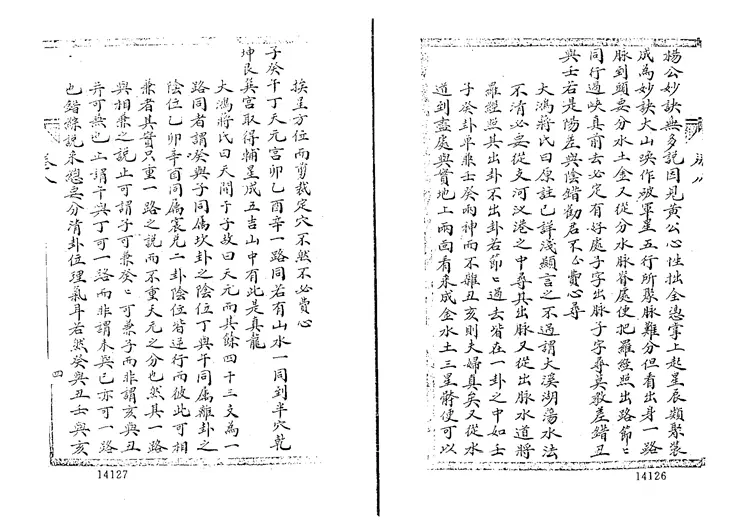 楊公妙訣無多說因見黃公心性拙全憑掌上起星辰類聚裝
成為妙訣大山喚作破軍星五行所聚脉難分但看出身一路
脉到頭要分水土金又從分水脉脊處便把羅經照出路節二
同行過峽真前去必定有好處子字出脉子字尋莫教差錯丑
與壬若是陽差與陰錯勸君不必費心尋
大鴻蔣氏曰原註已詳淺顯言之不過謂大溪湖蕩水法
不清必要從支河汊港之中尋其出脉又從出脉水道將
羅經照其出卦不出卦若節二過去皆在一卦之中如壬
子癸卦單兼壬癸兩神而不雜丑亥則夫婦真矣又從水
道到盡處與實地上兩面看來成金水土三星體便可以
卷八
14126
挨星方位而剪裁定穴不然不必費心
子癸午丁天元宮卯乙酉辛一路同若有山水一同到半穴乾
坤艮巽宮取得輔星成五吉山中有此是真龍
大鴻蔣氏曰天開于子故曰天元而其餘四十三支為一
路同者謂癸與子同屬坎卦之陰位丁與午同屬離卦之
陰位乙卯辛酉同屬震兌二卦陰位皆逆行而彼此可相
兼者其實只重一路之說而不重天元之分也然其一路
與相兼之說止可謂子可兼癸二可兼子而非謂亥與丑
並可兼也正謂午與丁可一路而非謂未與巳亦可一路
也錯綜說來總要分清卦位理氣耳若然癸與丑壬與亥
卷八
四
14127